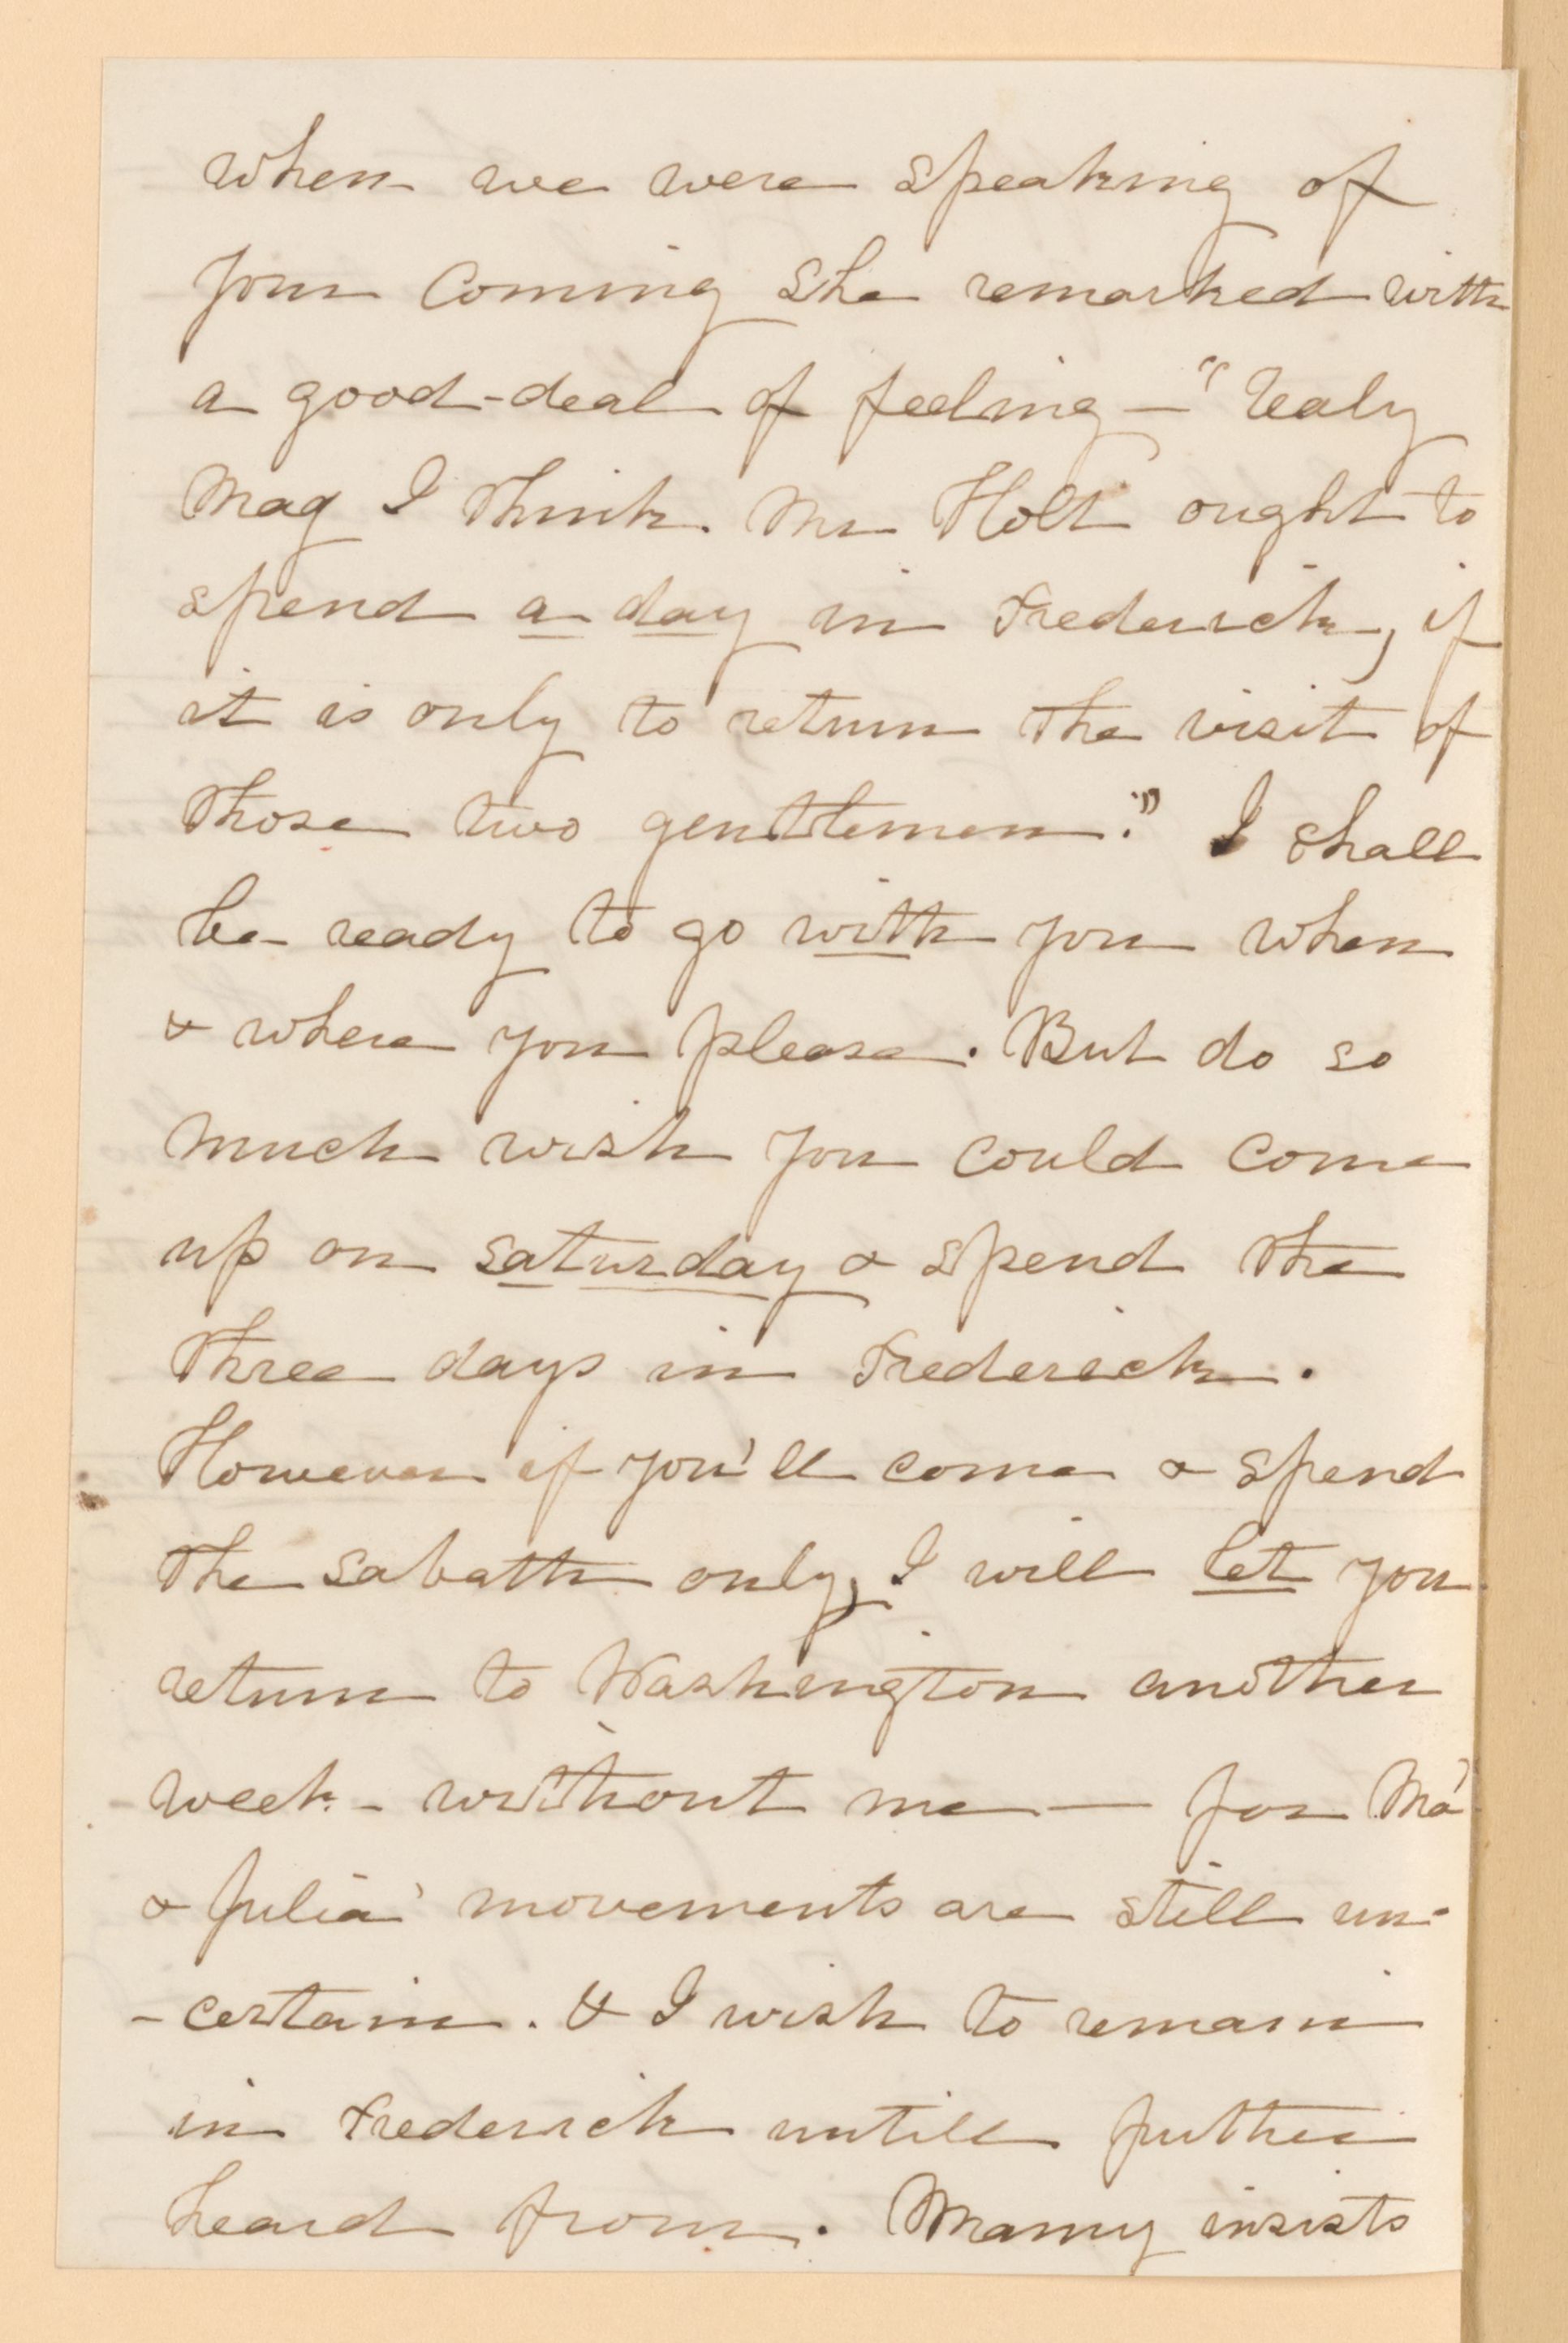 when we were speaking of
your coming she remarked with
a good-deal of feeling — "Realy
Mag I think Mr Holt ought to
spend a day in Frederick, if
it is only to return the visit of
those two gentlemen." I shall
be ready to go with you when
& where you please. But do so
much wish you could come
up on saturday & spend the
three days in Frederick.
However if you'll come & spend
the sabath only, I will let you
return to Washington another
week - without me — for Ma'
& Julia' movements are still un-
-certain. & I wish to remain
in Frederick untill further
heard from. Mamy insists